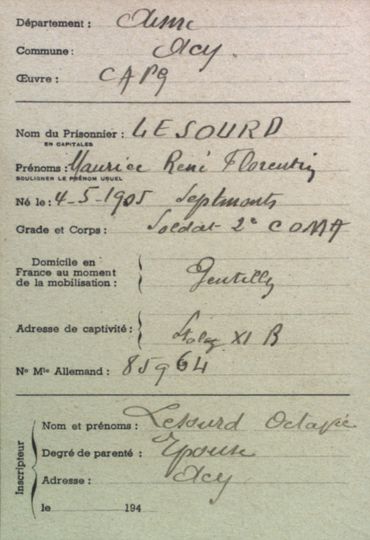 Département : Aisne
Commune : Acy.
Œuvre : CAPG
Nom du Prisonnier : LESOURD
EN CAPITALES
Prénoms : Maurice René Florentin
SOULIGNER LE PRÉNOM USUEL
Né le : 4-5-1905 Septmonts
Grade et Corps : Soldat 2e COMA
Domicile en
France au moment
de la mobilisation : Gentilly
Adresse de captivité : Stalag XI B
No Mle Allemand : 85964
Inscripteur
Nom et prénoms : Lesourd Octavie
Degré de parenté : Epouse
Adresse : Acy
le 194